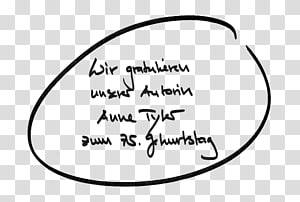 Wir gratulieren
unserer Autorin
Anne Tyler
zum 75. Geburtstag